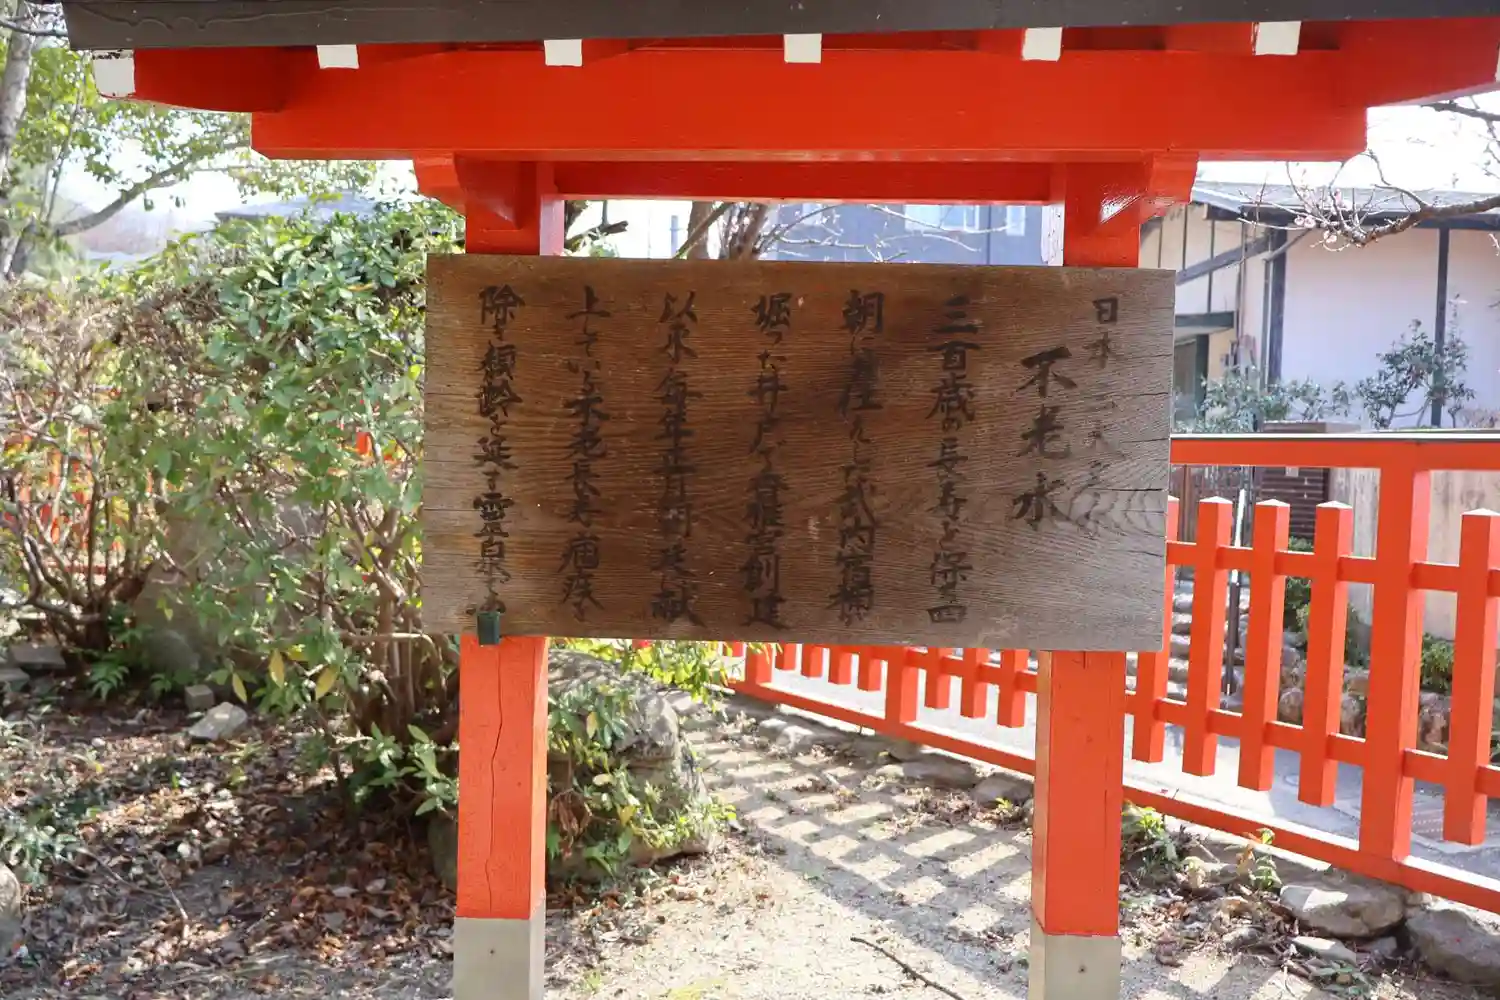 日本三大
不老水
三百歳の長寿を保ち四
朝に仕えした武内宿禰が
堀った井戸で香椎宮創建
以来毎年正月朝廷に献
上している不老長寿病疫を
除き齢を延す霊泉である